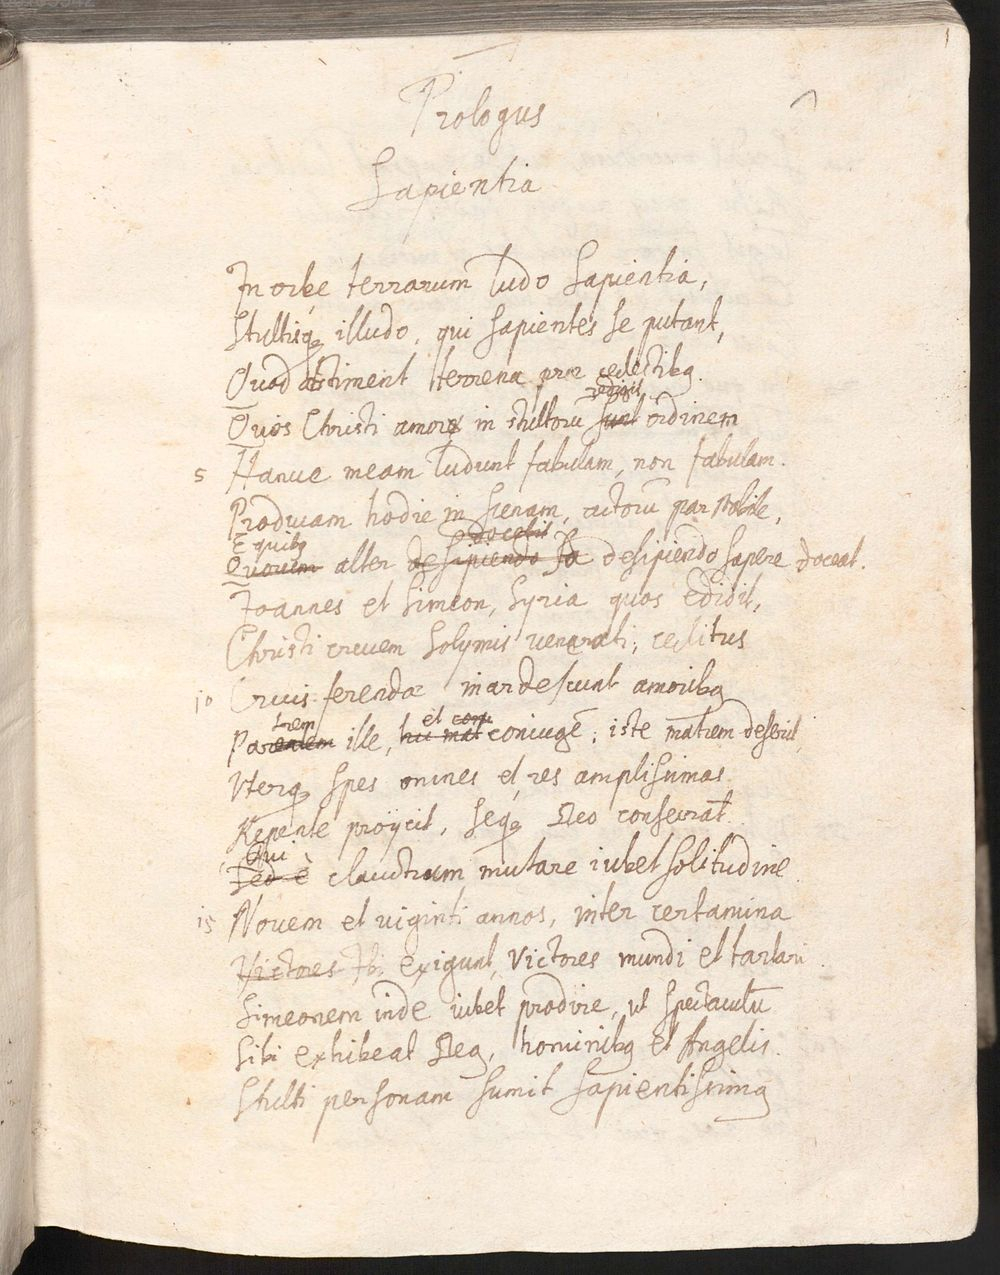 1
Prologus
Sapientia
In orbe terrarum ludo Sapientia,
Stultisq; illudo, qui sapientes se putant,
Quod aestiment terrena prae caelestibq.
redigit
Quos Christi amor in stultorū sunt ordinem
5 Hancce meam ludunt fabulam, non fabulam.
Producam hodie in scenam, actorū par nobile,
E quibq docebit
Quorum alter desipiendo sa desipiendo sapere doceat.
Joannes et Simeon, Syria quos edidit,
Christi crucem Solymis venerati, caelitus
10 Crucis ferendae inardescunt amoribq
trem et con
Parentem ille, hic mat coniugē; iste matrem deserit,
Vterq; spes omnes et res amplissimas
Repente proijcit, seq; Deo consecrat.
Qui
Deo è claustrum mutare iubet solitudine
15 Novem et viginti annos, inter certamina
Victores Ibi exigunt, Victores mundi et tartari.
Simeonem inde iubet prodire, ut spectaculū
Sibi exhibeat Deq, hominibq et Angelis.
Stulti personam sumit sapientissimq